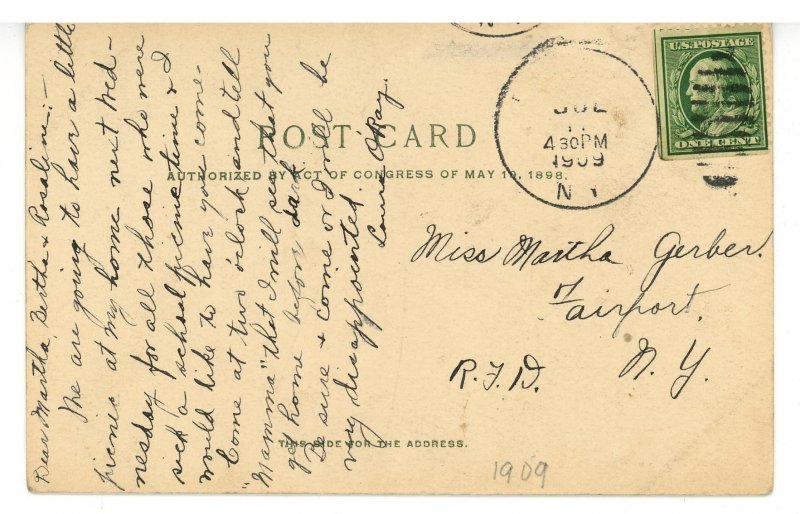 Dear Martha, Bertha & Rosaline:-
We are going to have a little
picnic at my home next Wed-
nesday for all those who were
sick a school picnic time & I
would like to have you come.
Come at two o'clock and tell
"Mamma" that I will see that you
get home before dark.
Be sure & come or I will be
very disappointed.
POST CARD
AUTHORIZED BY ACT OF CONGRESS OF MAY 19, 1898.
THIS SIDE FOR THE ADDRESS.
U.S. POSTAGE
ONE CENT
JUL
4 30 PM
1909
N Y
Miss Martha Gerber.
Fairport,
N. Y.
R.F.D.
1909